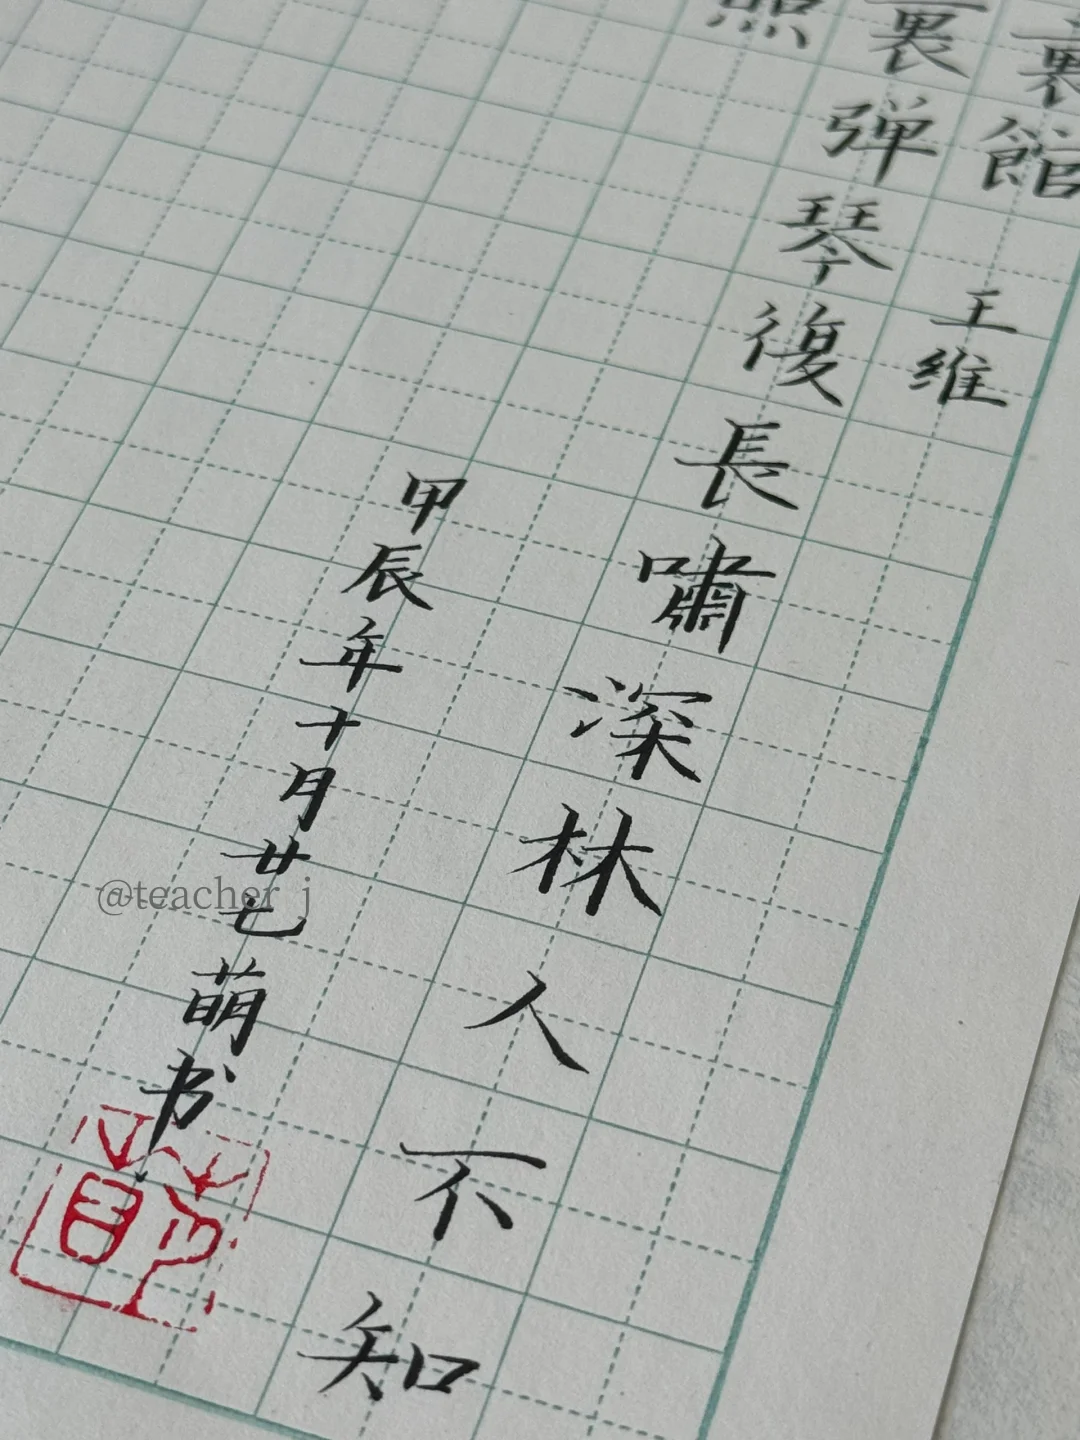 裏館 王维
裏弹琴復長嘯深林人不知
照
甲辰年十月廿七萌书
@teacher j